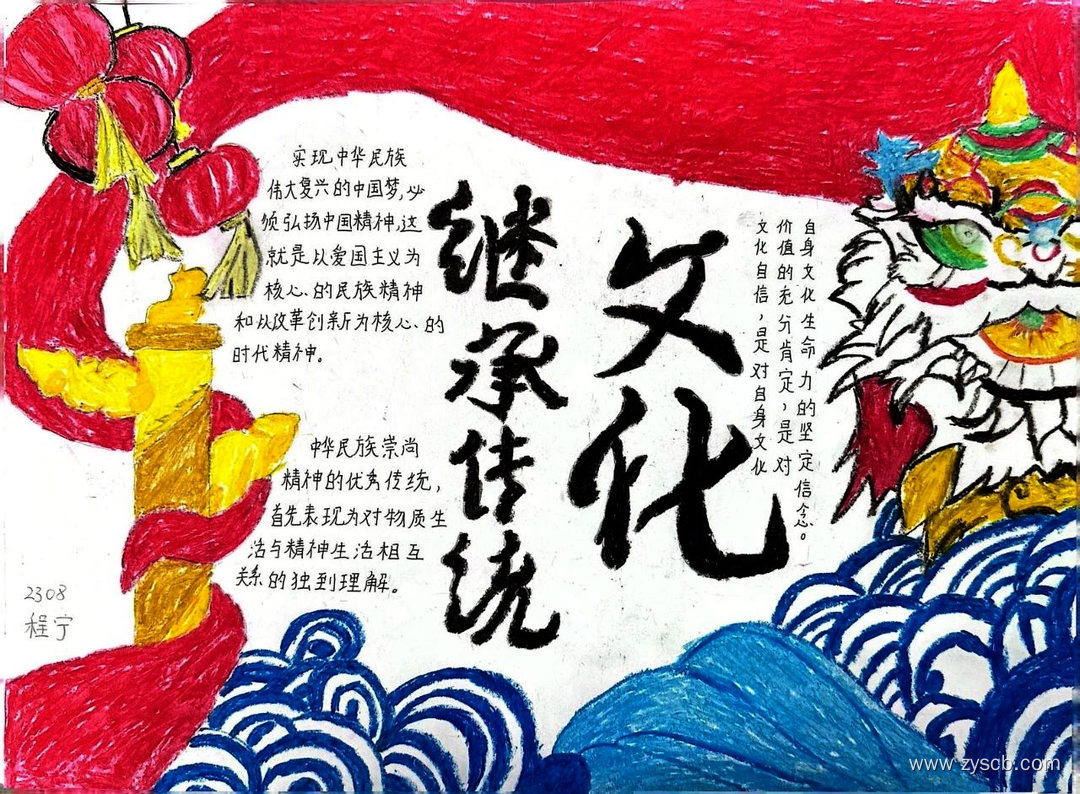 实现中华民族
伟大复兴的中国梦,必
须弘扬中国精神,这
就是以爱国主义为
核心的民族精神
和以改革创新为核心的
时代精神。
中华民族崇尚
精神的优秀传统,
首先表现为对物质生
活与精神生活相互
关系的独到理解。
继承传统
文化
文化自信,是对自身文化
价值的充分肯定,是对
自身文化生命力的坚定信念。
2308
程宁
www.zyscb.com